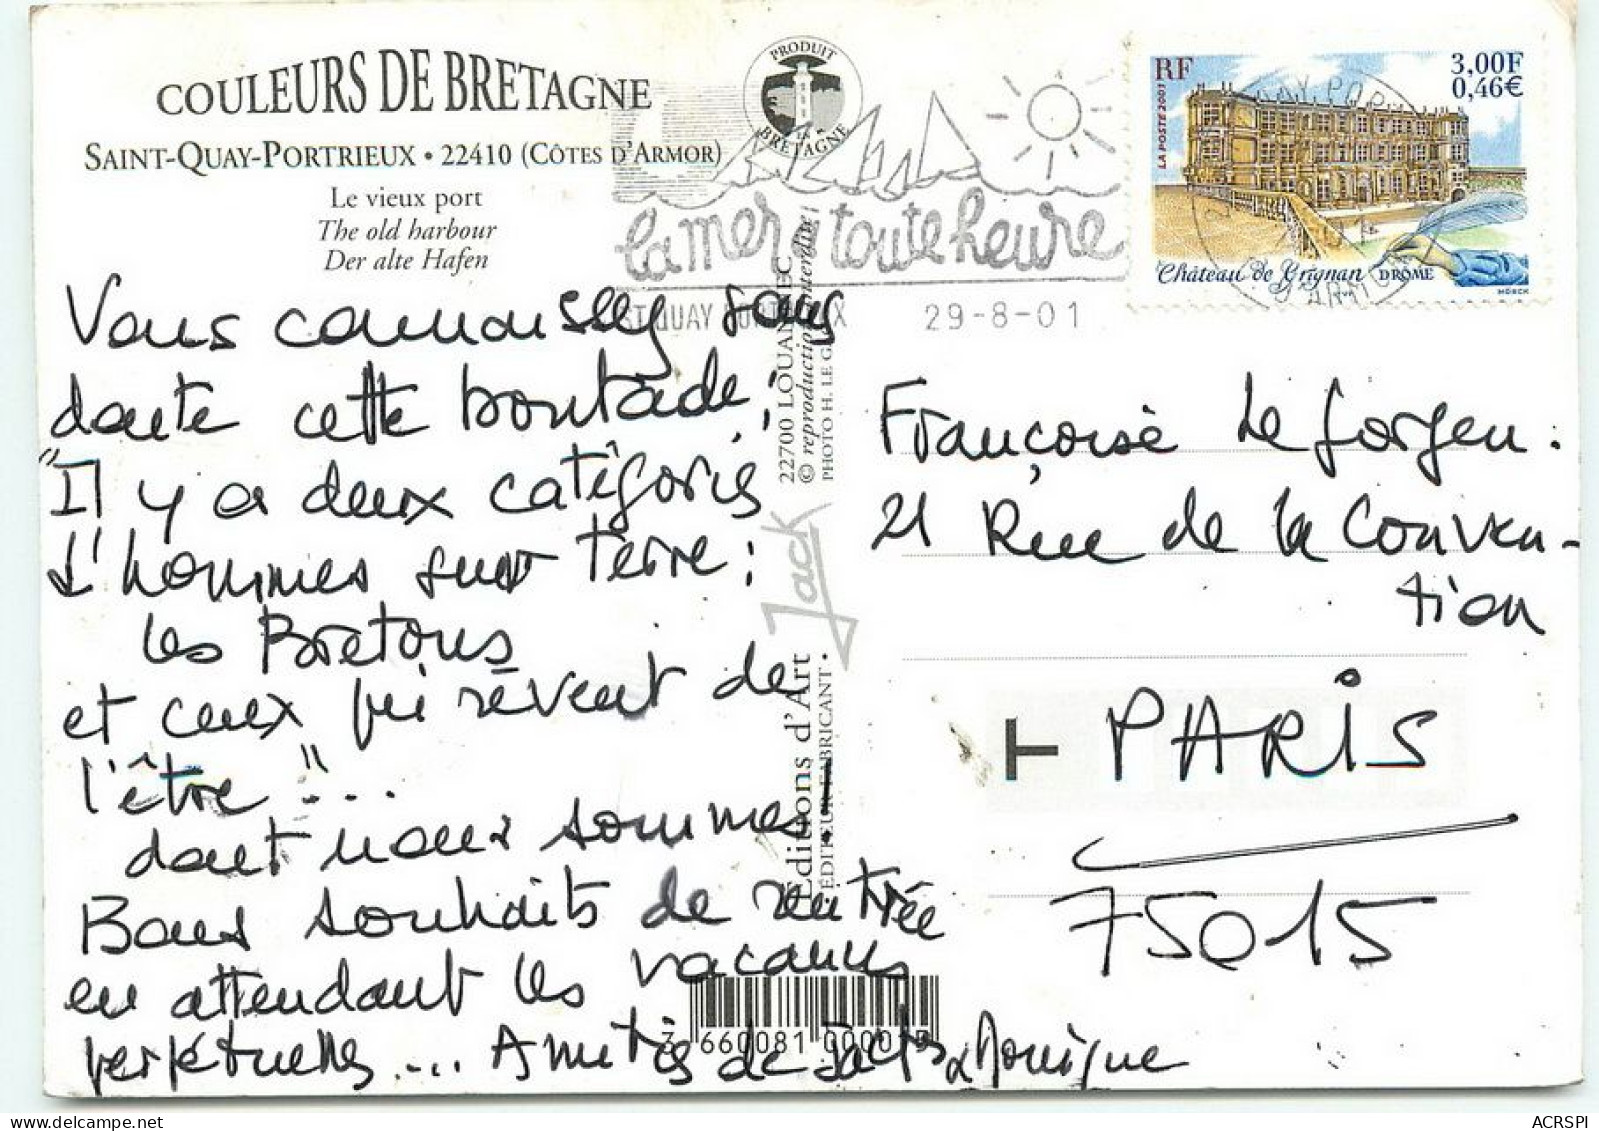 COULEURS DE BRETAGNE
SAINT-QUAY-PORTRIEUX • 22410 (CÔTES D'ARMOR)
Le vieux port
The old harbour
Der alte Hafen
PRODUIT
EN
BRETAGNE
la mer à toute heure
ST QUAY PORTRIEUX
29-8-01
RF
3,00F
0,46€
LA POSTE 2001
Château de Grignan DRÔME
Vous connaissez sans
doute cette boutade;
"Il y a deux catégories
d'hommes sur terre:
les Bretons
et ceux qui rêvent de
l'être"...
dont nous sommes
Bons souhaits de rentrée
en attendant les vacances
perpétuelles... Amitiés de Monique
22700 LOUANNEC
© reproduction interdite
PHOTO H. LE
Jack
Éditions d'Art
ÉDITEUR-FABRICANT •
Françoise Le
21 Rue de la Conven-
tion
T PARIS
75015
3 660081 000015
ACRSPI